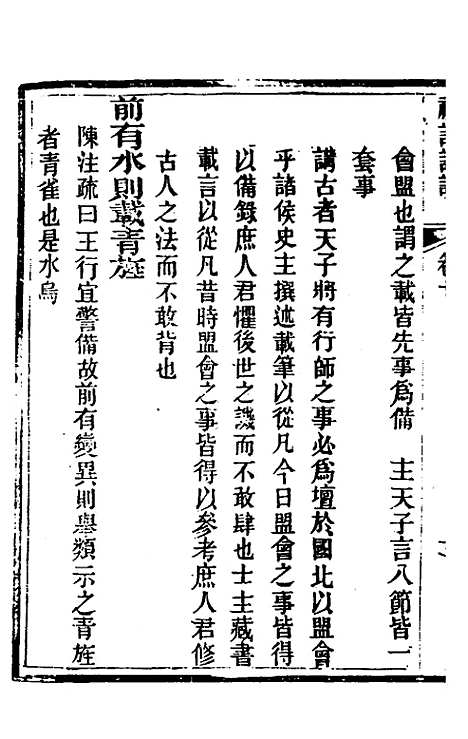 會盟也謂之載皆先事爲備　主天子言八節皆一
套事
講古者天子將有行師之事必爲壇於國北以盟會
乎諸侯史主撰述載筆以從凡今日盟會之事皆得
以備錄庶人君懼後世之譏而不敢肆也士主藏書
載言以從凡昔時盟會之事皆得以參考庶人君修
古人之法而不敢背也
前有水則載青旌
陳注疏曰王行宜警備故前有變異則舉類示之青旌
者青雀也是水鳥